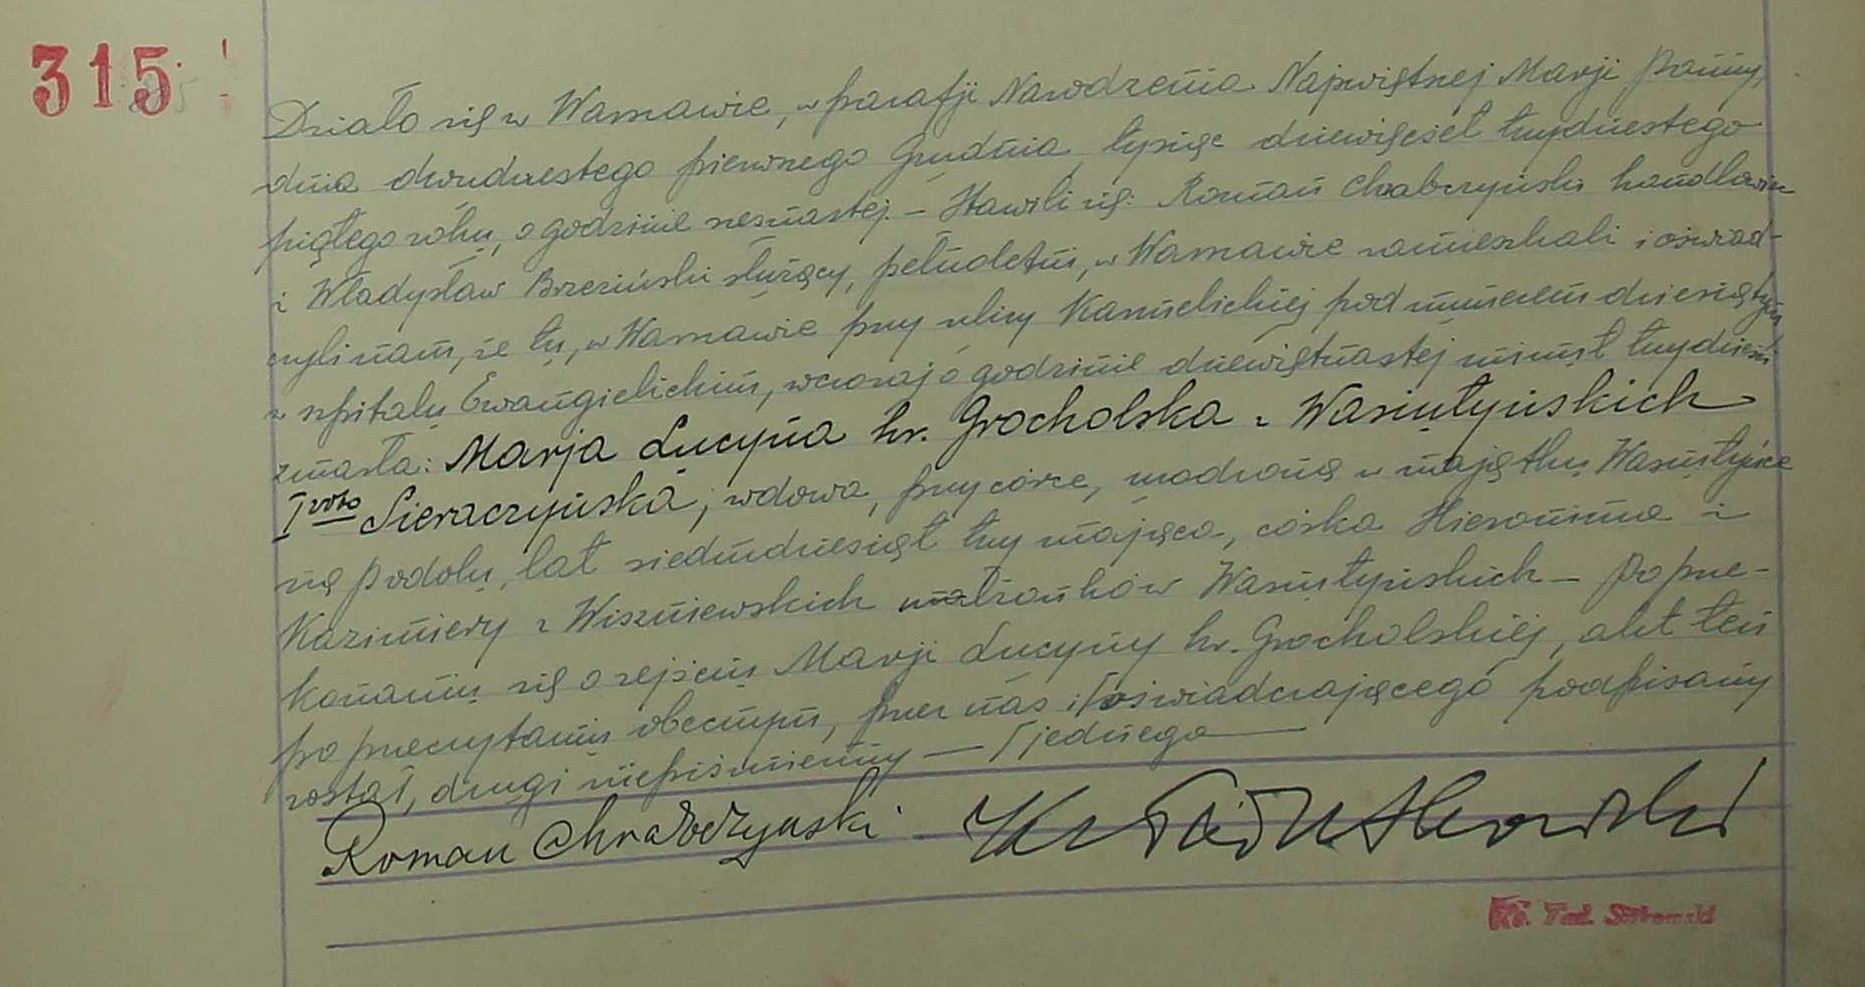 315
Działo się w Warszawie, w parafji Narodzenia Najświętszej Marji Panny,
dnia dwudziestego pierwszego Grudnia tysiąc dziewięćset trzydziestego
piątego roku, o godzinie szesnastej. – Stawili się: Roman Chrabczyński handlowiec
i Władysław Brzeziński służący, pełnoletni, w Warszawie zamieszkali i oświad-
czyli nam, że tu, w Warszawie przy ulicy Karmelickiej pod numerem dziesiątym
w szpitalu Ewangielickim, wczoraj o godzinie dziewiętnastej minut trzydzieści
zmarła: Marja Lucyna hr. Grocholska z Wasiutyńskich
I voto Sieraczyńska, wdowa, przy córce, urodzona w majątku Wasiutyńce
na Podolu, lat siedmdziesiąt trzy mająca, córka Hieronima i
Kazimiery z Wiszniewskich małżonków Wasiutyńskich – Po prze-
konaniu się o zejściu Marji Lucyny hr. Grocholskiej, akt ten
po przeczytaniu obecnym, przez nas i Γ oświadczającego podpisany
został, drugi niepiśmienny — Γ jednego —
Roman Chrabczyński
Ks. Tad. Sitkowski